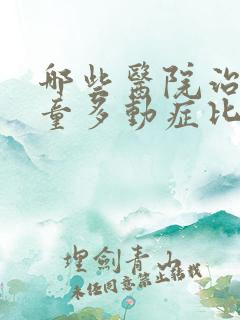 哪些醫院治
童多動症比
埋劍青山
未经同意禁止转载